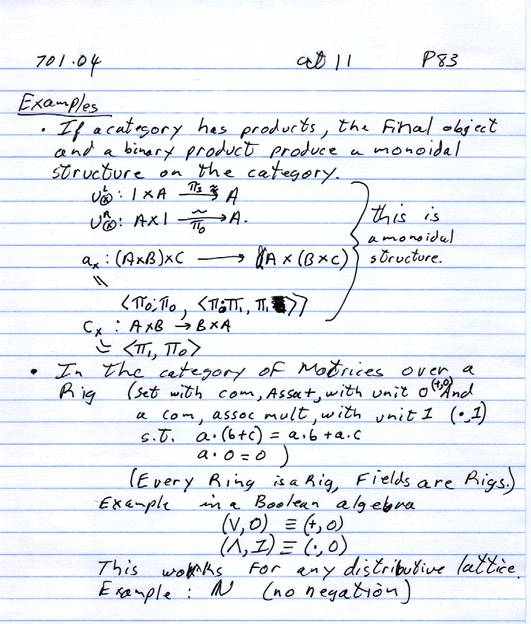 701.04 cat 11 P83
Examples
• If a category has products, the Final object
and a binary product produce a monoidal
structure on the category.
u^L_⊗ : 1×A —π₁ ≃→ A
u^R_⊗ : A×1 —~ π₀→ A.
this is
a monoidal
structure.
a_× : (A×B)×C ⟶ A×(B×C)
=
⟨π₀;π₀, ⟨π₀;π₁, π₁⟩⟩
c_× : A×B → B×A
= ⟨π₁, π₀⟩
• In the category of Matrices over a
Rig (set with com, Assa+, with unit 0 (+,0) And
a com, assoc mult, with unit 1 (·,1)
s.t. a·(b+c) = a.b+a.c
a·0=0 )
(Every Ring is a Rig, Fields are Rigs.)
Example in a Boolean algebra
(V,0) ≡ (+,0)
(Λ,I) ≡ (·,0)
This works for any distributive lattice.
Example : ℕ (no negation)